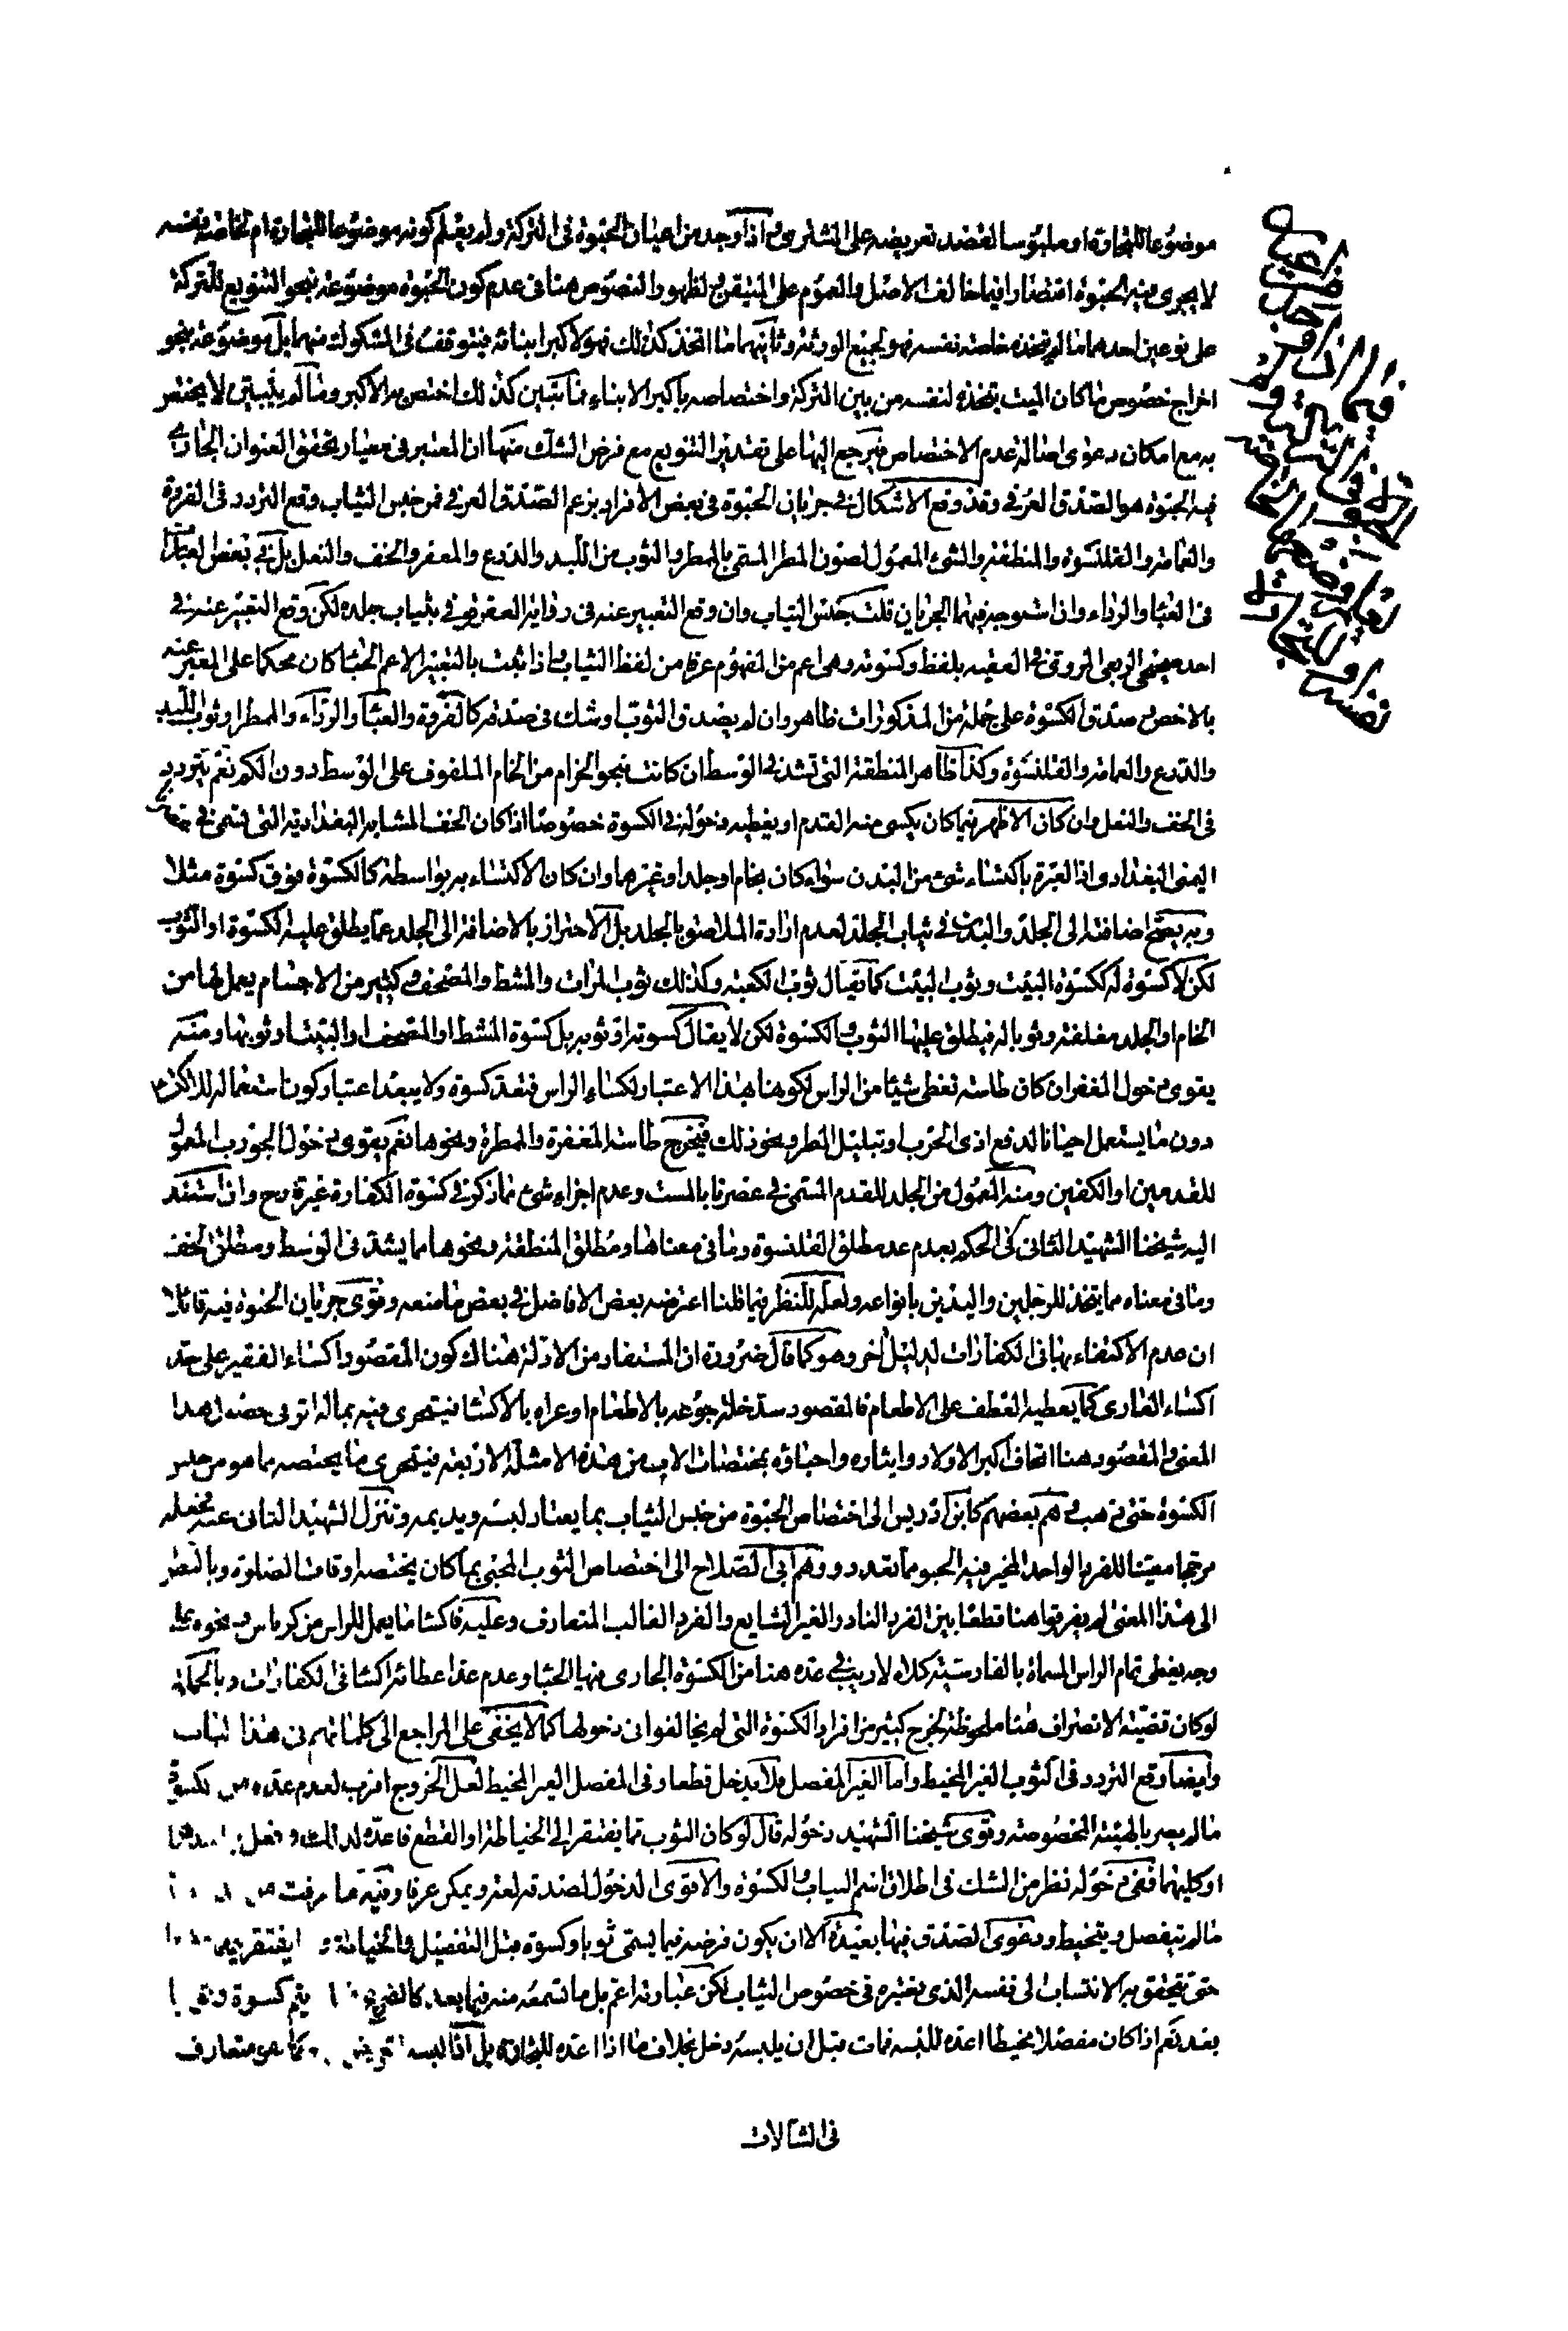 موضوعا للتجارة او ملبوسا لقصد تعريضه على المشتري ح اذا وجد من اعيان الحبوة فى التركة ولم يعلم كونه موضوعا للتجارة ام لخاصة نفسه
لا يجرى فيه الحبوة اقتصارا فيما خالف الاصل والعموم على المتيقن ح لظهور النصوص هنا فى عدم كون الحبوة موضوعة بنحو التنويع للتركة
على نوعين احدهما ما لم يتخذه خاصة نفسه فهو لجميع الورثة وثانيهما ما اتخذ كذلك فهو لاكبر ابنائه فيتوقف فى المشكوك منهما بل موضوعة بنحو
اخراج خصوص ما كان الميت يتخذه لنفسه من بين التركة واختصاصه باكبر الابناء فما تبين كذلك اختص به الاكبر وما لم يتبين لا يختص
به مع امكان دعوى اصالة عدم الاختصاص فيرجع اليها على تقدير التنويع مع فرض الشك منها ان المعتبر فى معيار تحقق العنوان الجارى
فيه الحبوة هو الصدق العرفى وقد وقع الاشكال فى جريان الحبوة فى بعض الافراد بزعم الصدق العرفى فمن جنس الثياب وقع التردد فى الفروة
والعمامة والقلنسوة والمنطقة والشىء المعمول لصون المطر المسمى بالممطر والثوب من اللبد والدرع والمغفر والخف والنعل بل فى بعض العبائر
فى العباء والرداء وان استوجه فيهما الجريان قلت جنس الثياب وان وقع التعبير عنه فى رواية العقرقوفى بثياب جلده لكن وقع التعبير عنه فى
احد صحيحى الربعى المروى فى الفقيه بلفظ وكسوته وهى اعم من المفهوم عرفا من لفظ الثياب فاذا ثبت بالتعبير الاعم الحباء كان محكما على المعبر عنه
بالاخص وصدق الكسوة على جملة من المذكورات ظاهر وان لم يصدق الثوب او شك فى صدقه كالفروة والعباء والرداء والممطر وثوب اللبد
والدرع والعمامة والقلنسوة وكذا ظاهر المنطقة التى تشد فى الوسط ان كانت بنحو الحزام من الخام الملفوف على الوسط دون الكمر نعم يتردد ح
فى الخف والنعل وان كان الاظهر فيما كان يكسى منه القدم او يغطيه دخوله فى الكسوة خصوصا اذا كان الخف المشابه البغدادية التى تسمى فى
اليمنى البغدادى اذ العبرة باكتساء شىء من البدن سواء كان بخام او جلد او غيرهما وان كان الاكتساء به بواسطة كالكسوة فوق كسوة مثلا
وبه يصح اضافته الى الجلد والبدن فى ثياب الجلد لعدم ارادة الملاصق بالجلد بل الاحتراز بالاضافة الى الجلد عما يطلق عليه الكسوة او الثوب
لكن لا كسوة له ككسوة البيت وثوب البيت كما يقال ثوب الكعبة وكذلك ثوب المرات والمشط والمصحف وكثير من الاجسام يعمل لها من
الخام او الجلد مغلفة وثوبا له فيطلق عليها الثوب والكسوة لكن لا يقال كسوته او ثوبه بل كسوة المشط او المصحف او البيت او ثوبها ومنه
يقوى دخول المغفر ان كان طاسته تغطى شيئا من الراس لكونها بهذا الاعتبار كساء الراس فتعد كسوة ولا يبعد اعتبار كون استعماله للاكتساء
دون ما يستعمل احيانا لدفع اذى الحرب او تبليل المطر ونحو ذلك فيخرج طاسة المغفرة والممطرة ونحوها نعم يقوى دخول الجورب المعمول
للقدمين او الكفين ومنه المعمول من الجلد للقدم المسمى فى عصرنا بالمست وعدم اجزاء شىء مما ذكر فى كسوة الكفارة غير قادح وان استند
اليه شيخنا الشهيد الثانى فى الحكم بعدم عد مطلق القلنسوة وما فى معناها ومطلق المنطقة ونحوها مما يشد فى الوسط ومطلق الخف
وما فى معناه مما يتخذ للرجلين واليدين بانواعه ولعله للنظر فيما قلنا اعترضه بعض الافاضل فى بعض ما منعه وقوى جريان الحبوة فيه قائلا
ان عدم الاكتفاء بها فى الكفارات لدليل اخر وهو كما قال ضرورة ان المستفاد من الادلة هناك كون المقصود اكساء الفقير على حد
اكساء العارى كما يعطيه العطف على الاطعام فالمقصود سد خلة جوعه بالاطعام او عراه بالاكساء فيتحرى فيه بما له اثر فى حصول هذا
المعنى والمقصود هنا اتحاف اكبر الاولاد وايثاره واحباؤه بمختصات الاب من هذه الامثلة الاربعة فيتحرى ما يختصه مما هو من جنس
الكسوة حتى ذهب وهم بعضهم كابن ادريس الى اختصاص الحبوة من جنس الثياب بما يعتاد لبسه ويديمه وتنزل الشهيد الثانى عنه بجعله
مرجحا معينا للفرد الواحد المخير فيه الحبو مما تعدد ووهم ابى الصلاح الى اختصاص الثوب المحبى بما كان يختصه اوقات الصلوة وبالنظر
الى هذا المعنى لم يفرقوا هنا قطعا بين الفرد النادر الغير الشايع والفرد الغالب المتعارف وعليه فاكساء ما يعمل للراس من كرباس ونحوه على
وجه يغطى تمام الراس المسماة بالفارسية كلاه لا ريب فى عده هنا من الكسوة الجارى فيها الحباء وعدم عد اعطائه اكساء فى الكفارات وبالجملة
لو كان قضية الانصراف هنا ملحوظة لخرج كثير من افراد الكسوة التى لم يخالفوا فى دخولها كما لا يخفى على المراجع الى كلماتهم فى هذا الباب
وايضا وقع التردد فى الثوب الغير المخيط واما الغير المفصل فلا يدخل قطعا وفى المفصل الغير المخيط لعل الخروج اقرب لعدم عده من كسوته
ما لم يصر بالهيئة المخصوصة وقوى شيخنا الشهيد دخوله قال لو كان الثوب مما يفتقر الى الخياطة او القطع فاعده لذلك و
او كليهما ففى دخوله نظر من الشك فى اطلاق اسم الثياب والكسوة والاقوى الدخول لصدقه لغة ويمكن عرفا وفيه ما عرفت من
ما لم يتفصل ويتخيط ودعوى الصدق فيها بعيدة الا ان يكون فرضه فيما يسمى ثوبا وكسوة قبل التفصيل والخياطة و
حتى يتحقق به الانتساب الى نفسه الذى يعتبره فى خصوص الثياب لكن عبارته اعم بل ما تسمعه منه فيما بعد كالصريح
بعد نعم اذا كان مفصلا مخيطا اعده للبسه فمات قبل ان يلبسه دخل بخلاف ما اذا اعده للتجارة بل اذا لبسه كما هو متعارف
فى الشالات